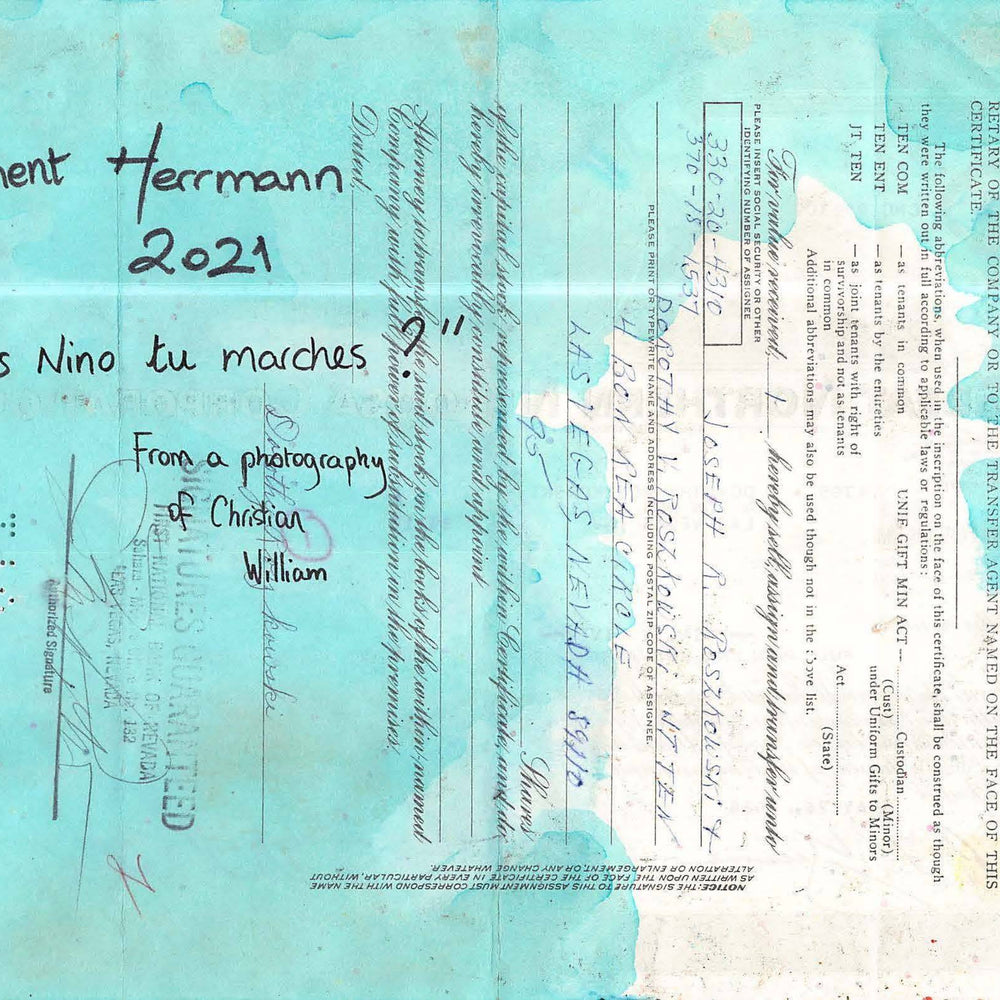 nent Herrmann
2021
s Nino tu marches ?"
From a photography
of Christian
William
RETARY OF THE COMPANY OR TO THE TRANSFER AGENT NAMED ON THE FACE OF THIS
CERTIFICATE.
The following abbreviations, when used in the inscription on the face of this certificate, shall be construed as though
they were written out in full according to applicable laws or regulations:
TEN COM — as tenants in common
TEN ENT — as tenants by the entireties
JT TEN — as joint tenants with right of
survivorship and not as tenants
in common
UNIF GIFT MIN ACT — Custodian
(Cust) (Minor)
under Uniform Gifts to Minors
Act
(State)
Additional abbreviations may also be used though not in the above list.
For value received, I hereby sell, assign and transfer unto
PLEASE INSERT SOCIAL SECURITY OR OTHER
IDENTIFYING NUMBER OF ASSIGNEE
330-20-4310
370-18-1537
JOSEPH R. ROSZKOWSKI &
DOROTHY V. ROSZKOWSKI JT TEN
PLEASE PRINT OR TYPEWRITE NAME AND ADDRESS INCLUDING POSTAL ZIP CODE OF ASSIGNEE.
LAS VEGAS, NEVADA 89110
95 Shares
of the capital stock represented by the within Certificate, and do
hereby irrevocably constitute and appoint
Attorney to transfer the said stock on the books of the within-named
Company with full power of substitution in the premises.
Dated,
NOTICE: THE SIGNATURE TO THIS ASSIGNMENT MUST CORRESPOND WITH THE NAME
AS WRITTEN UPON THE FACE OF THE CERTIFICATE IN EVERY PARTICULAR, WITHOUT
ALTERATION OR ENLARGEMENT, OR ANY CHANGE WHATEVER.
SIGNATURES GUARANTEED
FIRST NATIONAL BANK OF NEVADA
LAS VEGAS, NEVADA
Authorized Signature